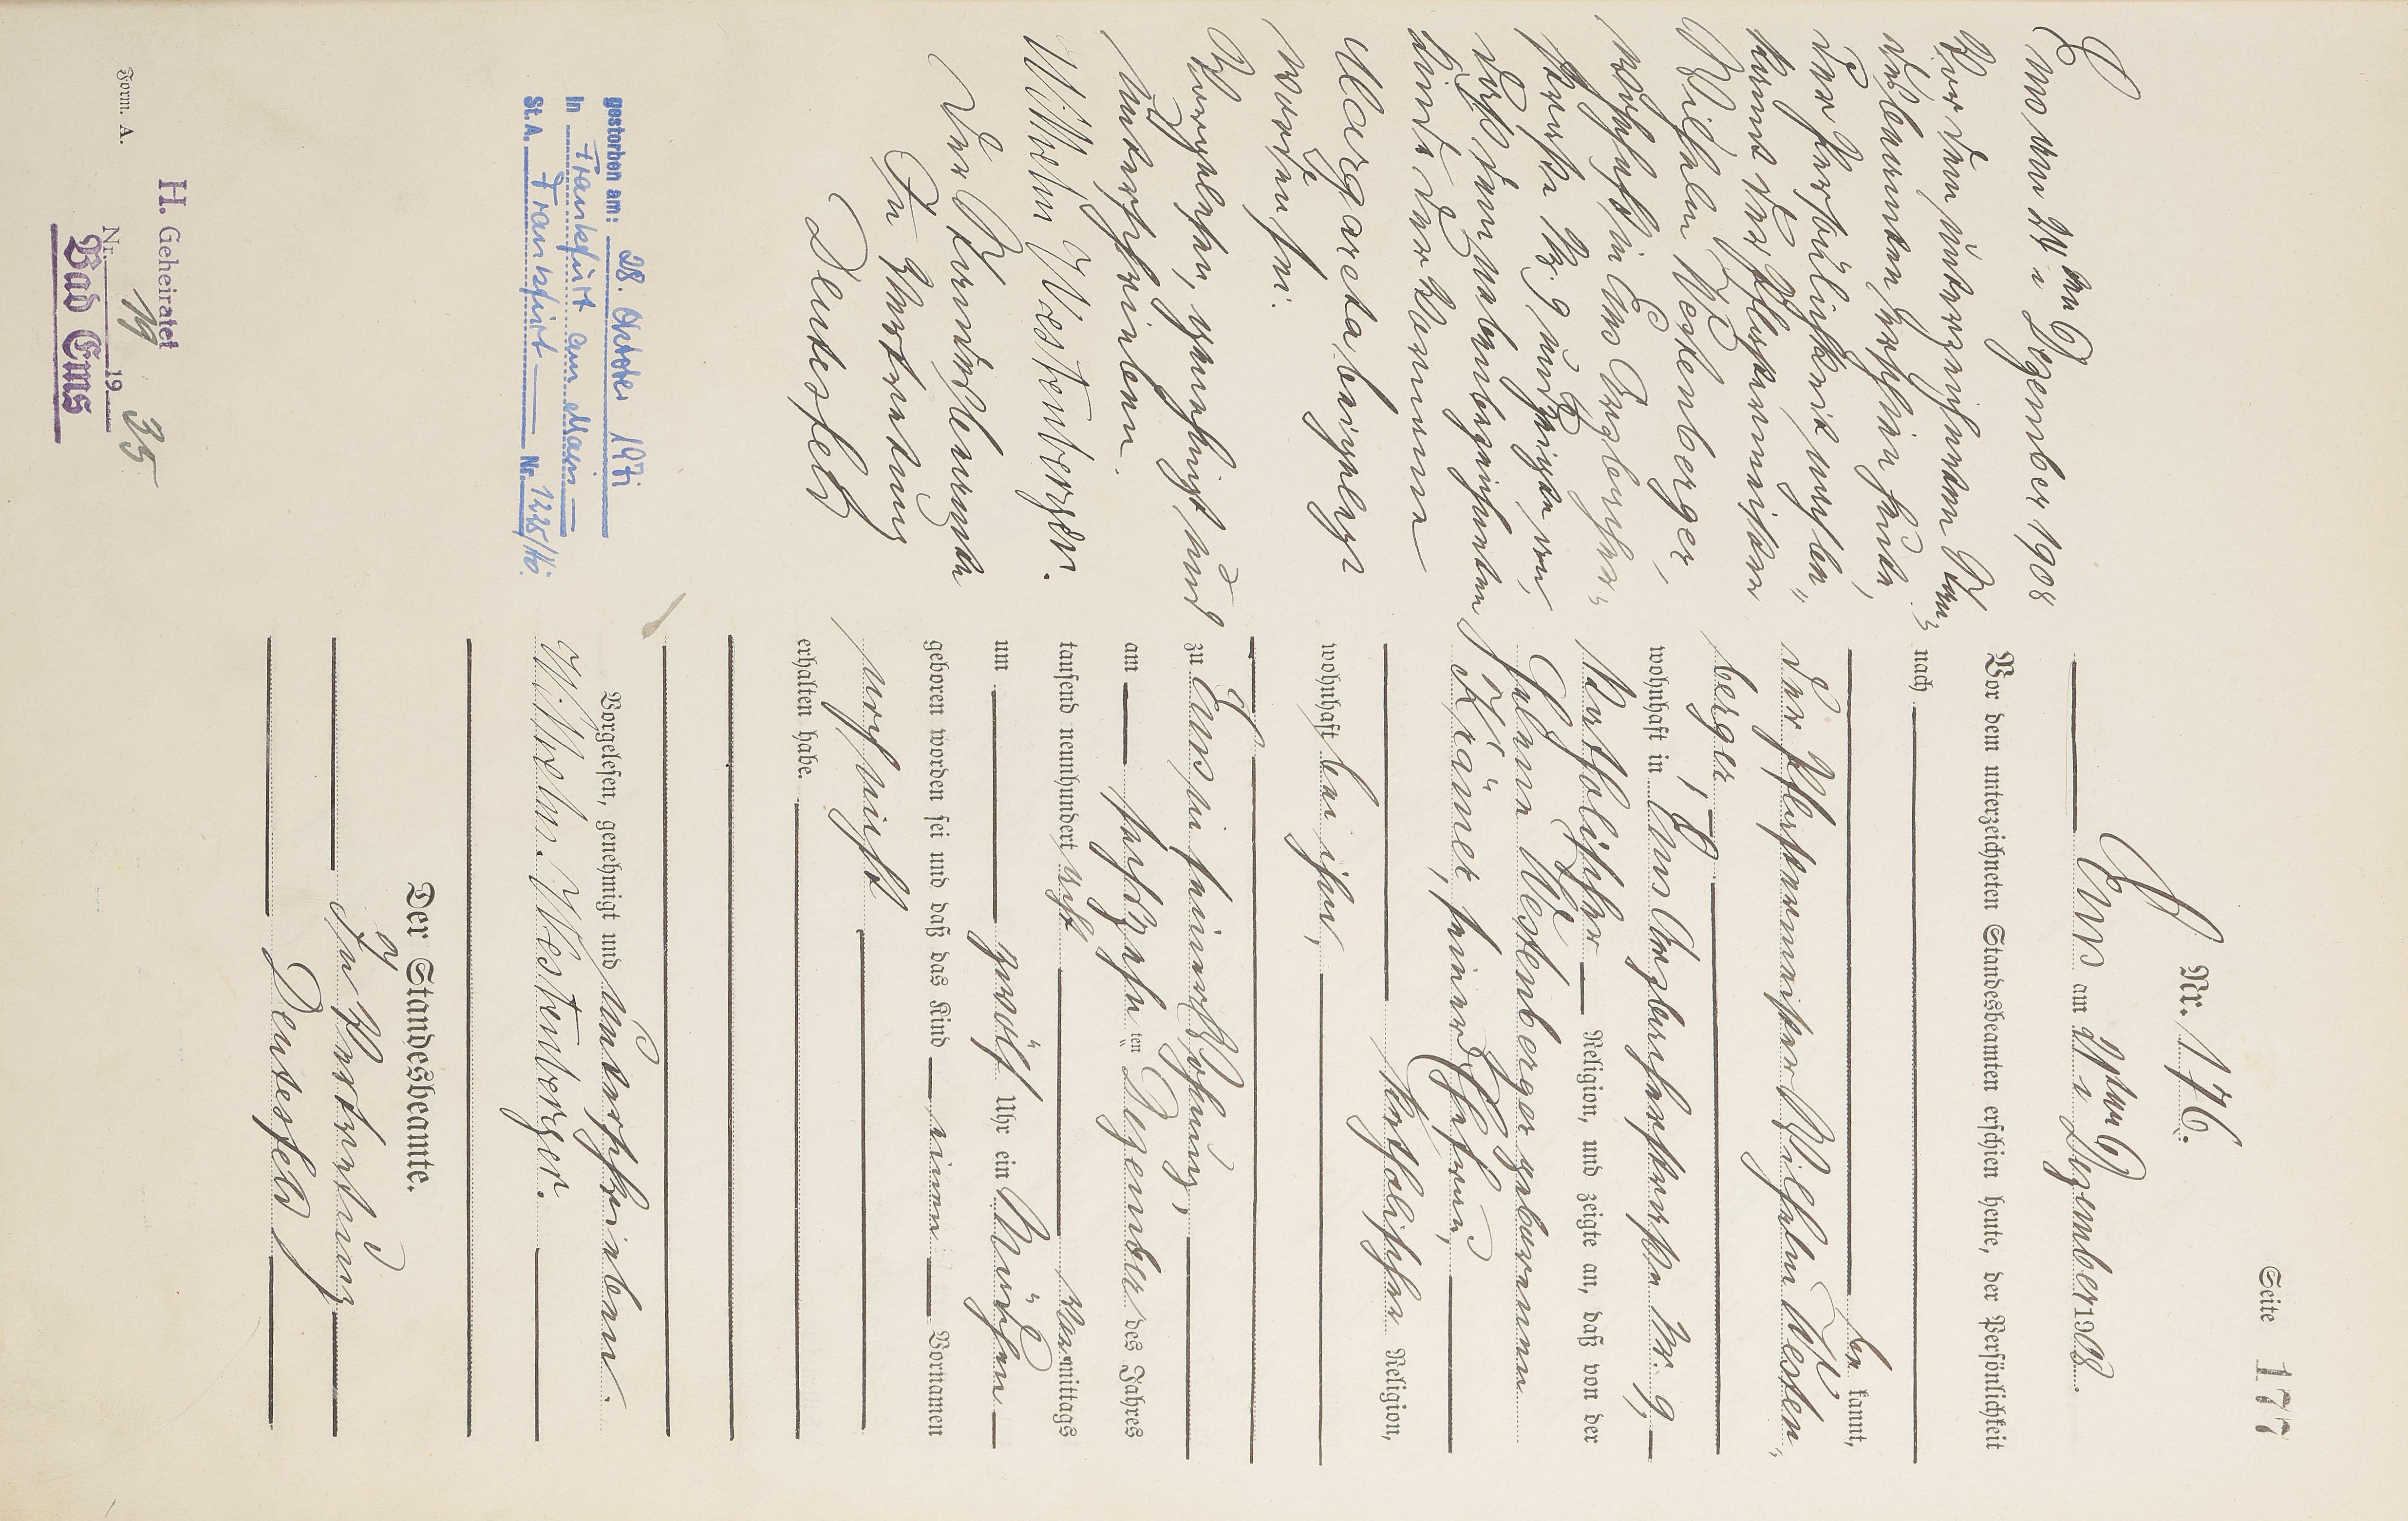 Seite 177
Nr. 176.
Ems am 21ten Dezember 1908.
Vor dem unterzeichneten Standesbeamten erschien heute, der Persönlichkeit
nach
be kannt,
der Pflasterermeister Wilhelm Westen„
berger,
wohnhaft in Ems Arzbacherstraße Nr. 9,
katholischer Religion, und zeigte an, daß von der
Helene Westenberger geborenen
Krämer, seiner Ehefrau,
katholischer Religion,
wohnhaft bei ihm,
zu Ems in seiner Wohnung,
am sechszehnten Dezember des Jahres
tausend neunhundert acht Vormittags
um zwölf Uhr ein Mädchen
geboren worden sei und daß das Kind einen Vornamen
noch nicht
erhalten habe.
Vorgelesen, genehmigt und unterschrieben.
Wilhelm Westenberger.
Der Standesbeamte.
In Vertretung
Deutesfeld
Ems am 24ten Dezember 1908
Vor dem unterzeichneten Stan„
desbeamten erschien heute,
der Persönlichkeit nach be„
kannt der Pflasterermeister
Wilhelm Westenberger,
wohnhaft in Ems Arzbacher„
straße Nr. 9 und zeigte an,
daß dem nebenbezeichneten
Kinde der Vorname
Margareta beigelegt
worden sei.
Vorgelesen, genehmigt und
unterschrieben.
Wilhelm Westenberger.
Der Standesbeamte
In Vertretung
Deutesfeld
gestorben am: 28. Oktober 1971
in Frankfurt am Main
St. A. Frankfurt Nr. 1225/
H. Geheiratet
Nr. 19 19 35
Bad Ems
Form. A.